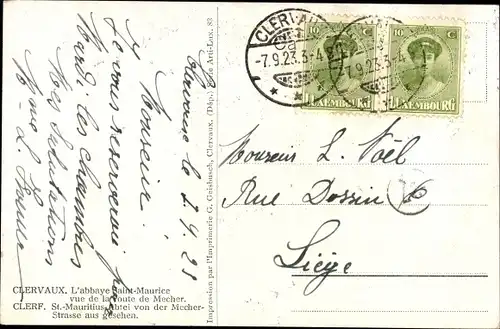 Clervaux le 7.9.23
Monsieur
Je vous reserverai pour
Mardi les chambres
Mes Salutations
Mme L.
CLERVAUX
-7.9.23.3-4
-7.9.23.3-4
10 C
10 C
LUXEMBOURG
LUXEMBOURG
Monsieur L. Noël
Rue Dossin 6
Liège
CLERVAUX. L'abbaye Saint-Maurice
vue de la route de Mecher.
CLERF. St.-Mauritius-Abtei von der Mecher-
Strasse aus gesehen.
Impression par l'Imprimerie G. Geisbusch, Clervaux. (Dép. Arti-Lux. 83